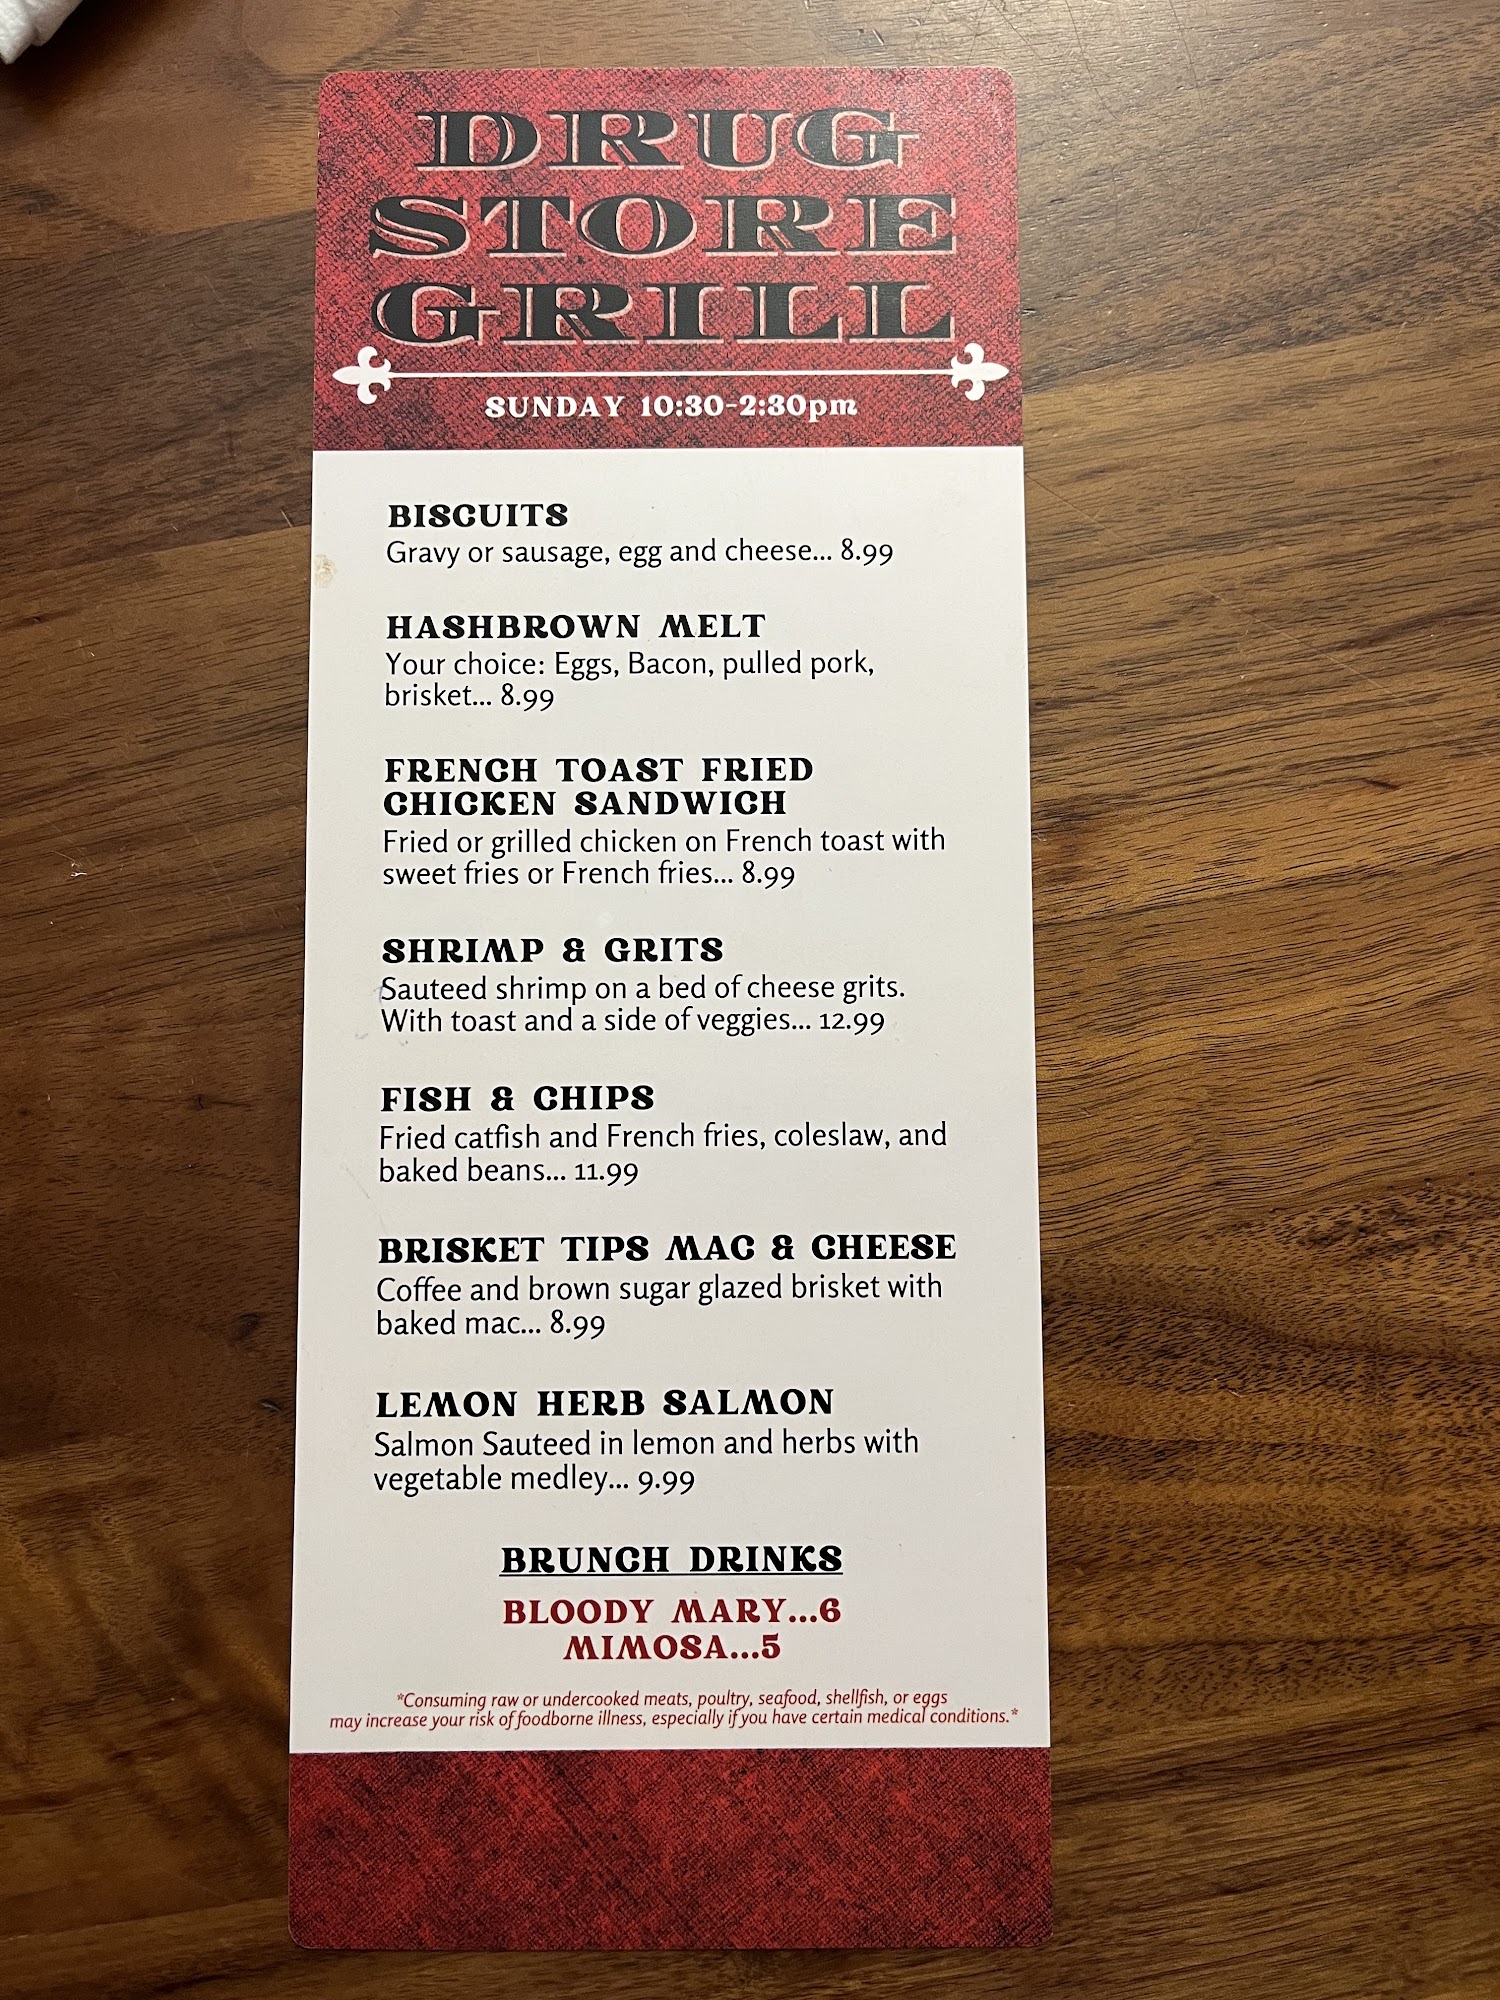 DRUG
STORE
GRILL
SUNDAY 10:30-2:30pm
BISCUITS
Gravy or sausage, egg and cheese... 8.99
HASHBROWN MELT
Your choice: Eggs, Bacon, pulled pork,
brisket... 8.99
FRENCH TOAST FRIED
CHICKEN SANDWICH
Fried or grilled chicken on French toast with
sweet fries or French fries... 8.99
SHRIMP & GRITS
Sauteed shrimp on a bed of cheese grits.
With toast and a side of veggies... 12.99
FISH & CHIPS
Fried catfish and French fries, coleslaw, and
baked beans... 11.99
BRISKET TIPS MAC & CHEESE
Coffee and brown sugar glazed brisket with
baked mac... 8.99
LEMON HERB SALMON
Salmon Sauteed in lemon and herbs with
vegetable medley... 9.99
BRUNCH DRINKS
BLOODY MARY...6
MIMOSA...5
*Consuming raw or undercooked meats, poultry, seafood, shellfish, or eggs
may increase your risk of foodborne illness, especially if you have certain medical conditions.*